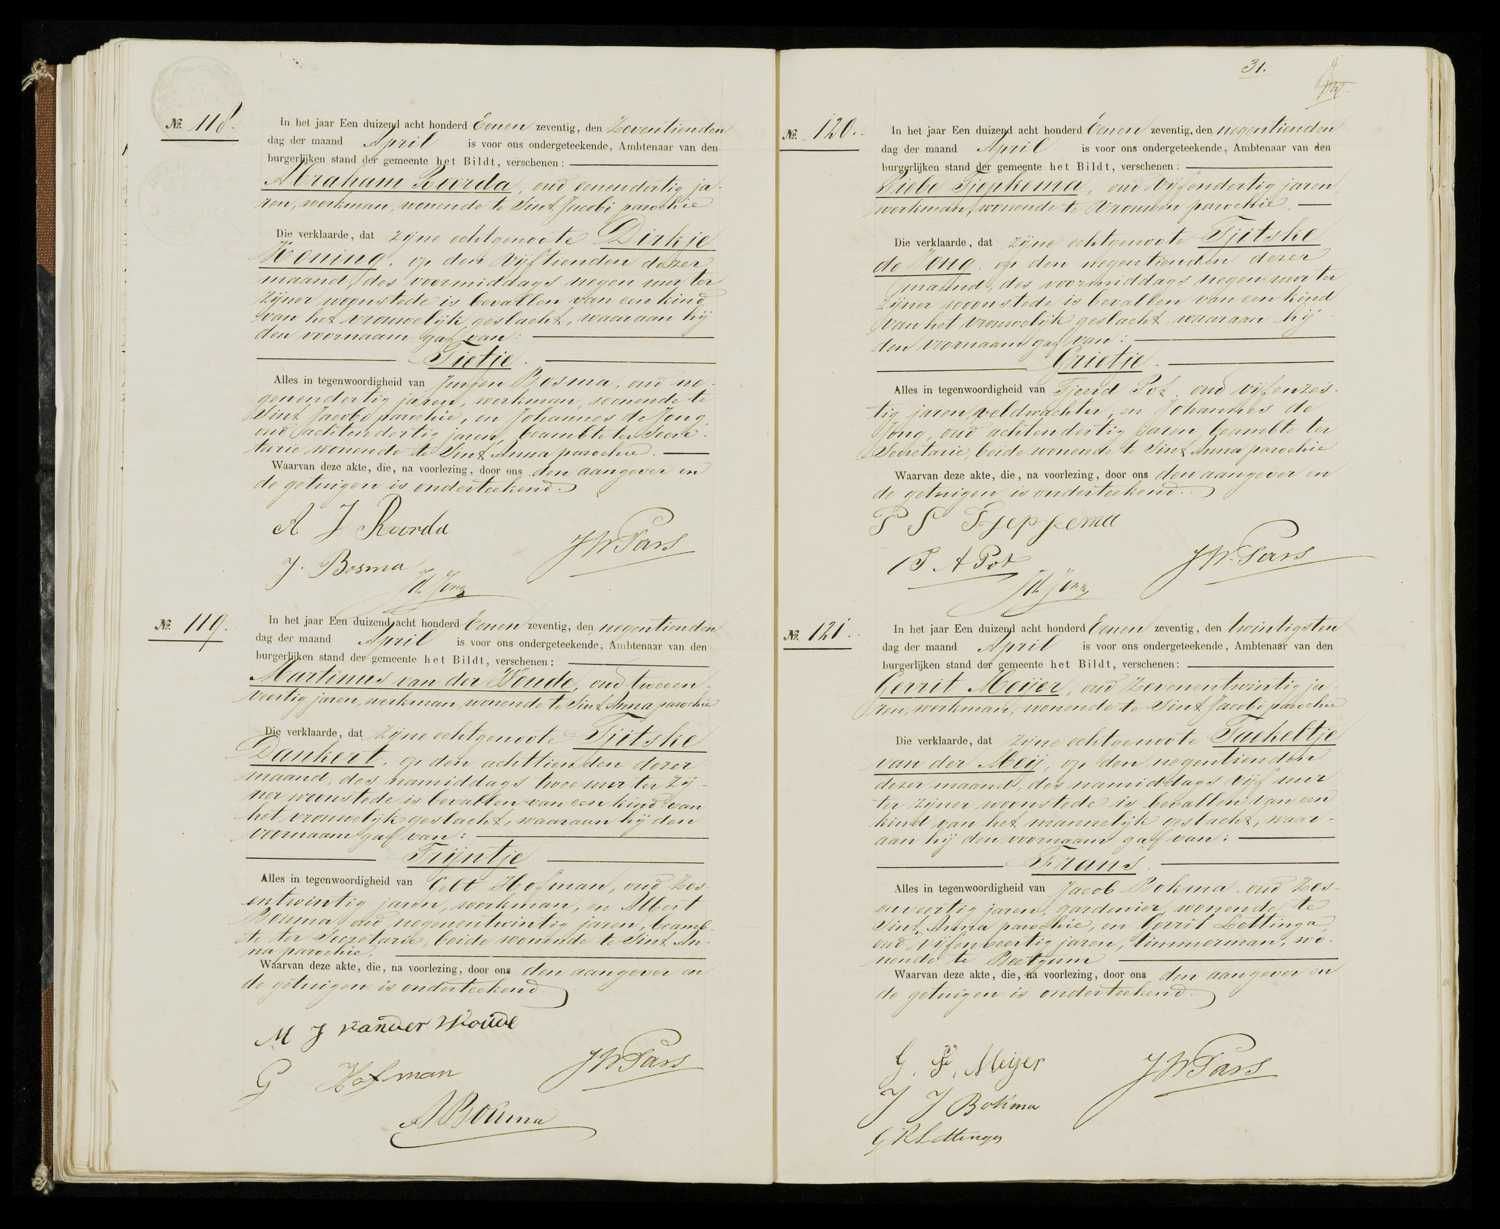 31.
Nº. 118.
In het jaar Een duizend acht honderd Eenen zeventig, den Zeventienden
dag der maand April is voor ons ondergeteekende, Ambtenaar van den
burgerlijken stand der gemeente het Bildt, verschenen:
Abraham Roorda, oud eenendertig ja-
ren, werkman, wonende te Sint Jacobi parochie
Die verklaarde, dat zijne echtgenoote Dirkje
Koning, op den vijftienden dezer
maand, des voormiddags negen uur ter
zijner woonstede is bevallen van een kind
van het vrouwelijk geslacht, waaraan hij
den voornaam gaf van:
Tietje.
Alles in tegenwoordigheid van Jurjen Bosma, oud ne-
genendertig jaren, werkman, wonende te
Sint Jacobi parochie, en Johannes de Jong
oud achtendertig jaren, beambte ter Secre-
tarie wonende te Sint Anna parochie.
Waarvan deze akte, die, na voorlezing, door ons den aangever en
de getuigen is onderteekend.
A J Roorda
J W Pars
J. Bosma
J d Jong
Nº. 119.
In het jaar Een duizend acht honderd Eenen zeventig, den negentienden
dag der maand April is voor ons ondergeteekende, Ambtenaar van den
burgerlijken stand der gemeente het Bildt, verschenen:
Martinus van der Woude, oud tweeen-
veertig jaren, werkman, wonende te Sint Anna parochie
Die verklaarde, dat zijne echtgenoote Tjitske
Dankert, op den achttienden dezer
maand, des namiddags twee uur ter zij-
ner woonstede is bevallen van een kind van
het vrouwelijk geslacht, waaraan hij den
voornaam gaf van:
Trijntje
Alles in tegenwoordigheid van Gelt Hofman, oud zes-
entwintig jaren, werkman, en Albert
Bouma oud negenentwintig jaren, beamb-
te ter Secretarie, beide wonende te Sint An-
na parochie.
Waarvan deze akte, die, na voorlezing, door ons den aangever en
de getuigen is onderteekend
M J van der Woude
G Hofman
J W Pars
A Bouma
Nº. 120.
In het jaar Een duizend acht honderd Eenen zeventig, den negentienden
dag der maand April is voor ons ondergeteekende, Ambtenaar van den
burgerlijken stand der gemeente het Bildt, verschenen:
Piebe Tjepkema, oud vijfendertig jaren,
werkman, wonende te Vrouwen parochie.
Die verklaarde, dat zijne echtgenoote Tjitske
de Jong, op den negentienden dezer
maand, des voormiddags negen uur ter
zijner woonstede is bevallen van een kind
van het vrouwelijk geslacht waaraan hij
den voornaam gaf van:
Grietje.
Alles in tegenwoordigheid van Tjeerd Pot, oud vijfenzes-
tig jaren, veldwachter, en Johannes de
Jong, oud achtendertig jaren beambte ter
Secretarie, beide wonende te Sint Anna parochie
Waarvan deze akte, die, na voorlezing, door ons den aangever en
de getuigen is onderteekend.
P S Tjepkema
T A Pot
J W Pars
J d Jong
Nº. 121.
In het jaar Een duizend acht honderd Eenen zeventig, den twintigsten
dag der maand April is voor ons ondergeteekende, Ambtenaar van den
burgerlijken stand der gemeente het Bildt, verschenen:
Gerrit Meijer, oud zevenentwintig ja-
ren, werkman, wonende te Sint Jacobi parochie
Die verklaarde, dat zijne echtgenoote Tacheltje
van der Meij, op den negentienden
dezer maand, des namiddags vijf uur
ter zijner woonstede is bevallen van een
kind van het mannelijk geslacht, waar-
aan hij den voornaam gaf van:
Frans.
Alles in tegenwoordigheid van Jacob Bokma oud zes-
enveertig jaren, gardenier, wonende te
Sint Anna parochie, en Gerrit Lettinga,
oud vijfenveertig jaren, timmerman, wo-
nende te Beetgum
Waarvan deze akte, die, na voorlezing, door ons den aangever en
de getuigen is onderteekend.
G. F. Meijer
J W Pars
J J Bokma
G R Lettinga